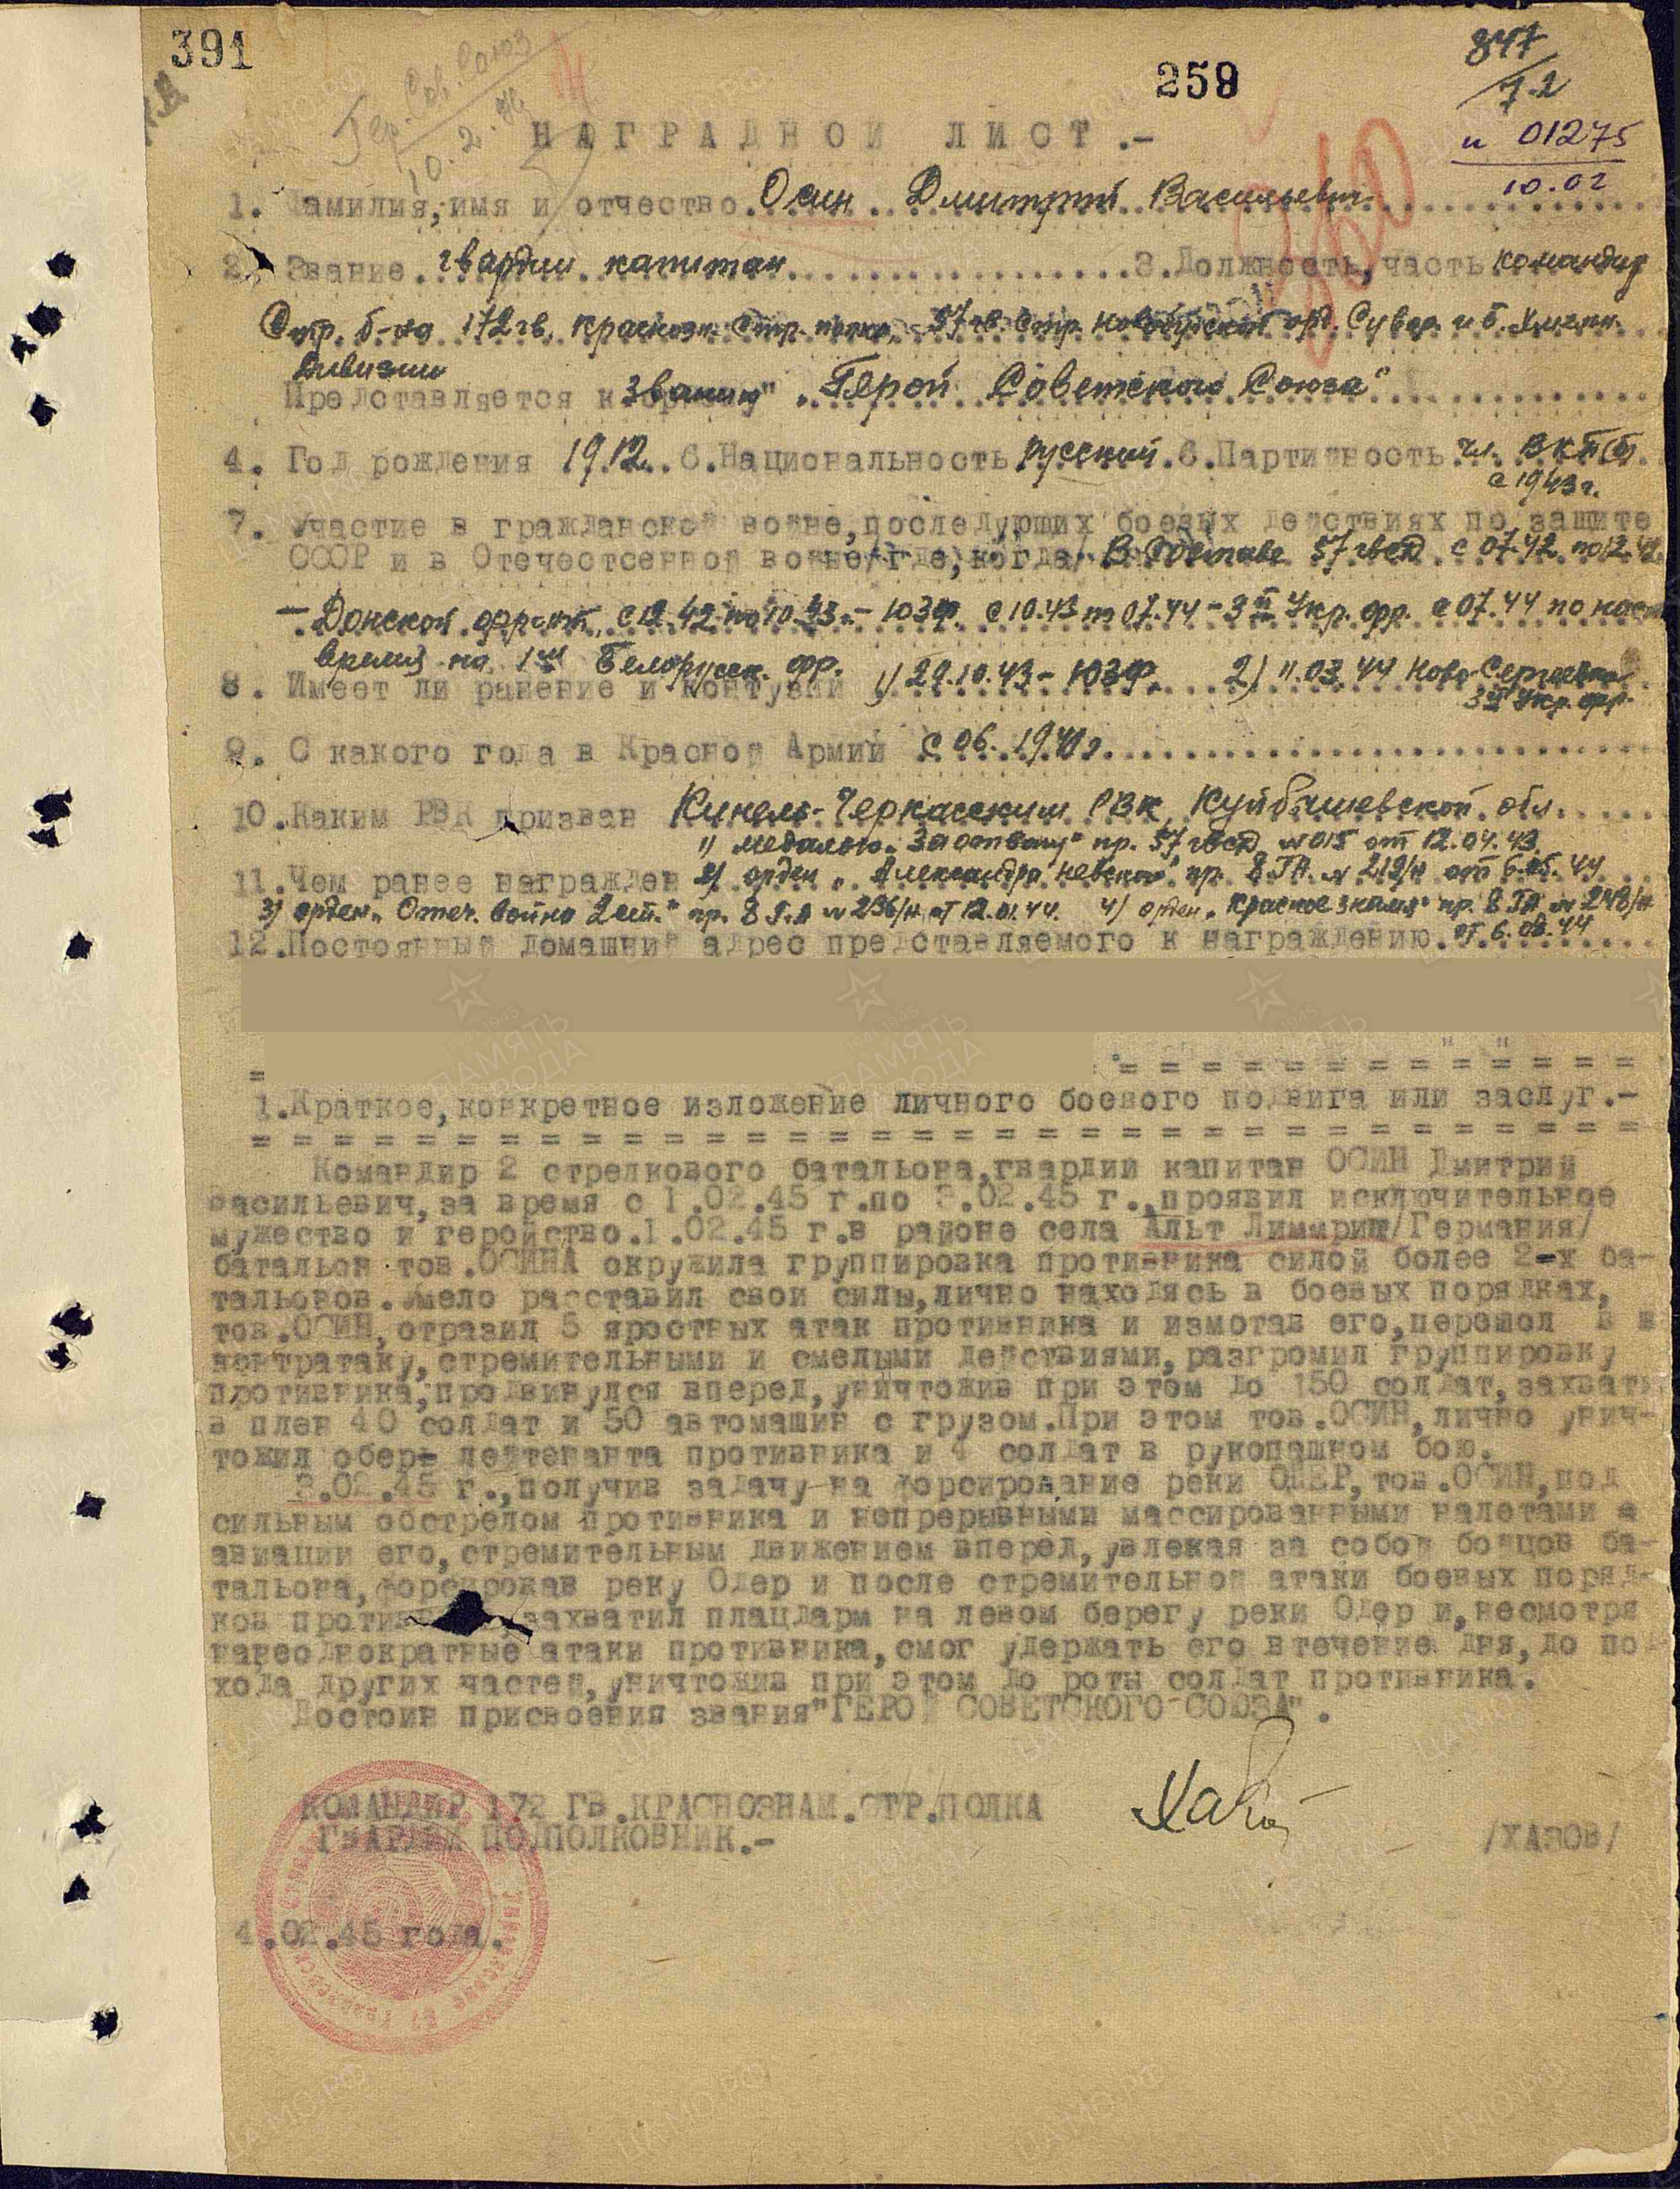 391
259
847
7.2
н 01275
10.02
Гер. Сов. Союз
10.2.
360
НАГРАДНОЙ ЛИСТ.-
1. Фамилия, имя и отчество. Осин Дмитрий Васильевич
2. Звание. гвардии капитан 3. Должность, часть командир
Стр. б-на 172 гв. Краснозн. Стр. полка, 57 гв. Стр. Новобугской орд. Сувор. и Б. Хмельн.
дивизии
Представляется к званию "Герой Советского Союза"
4. Год рождения 1912. 6. Национальность русский. 6. Партийность чл. ВКП(б)
с 1943 г.
7. Участие в гражданской войне, последующих боевых действиях по защите
СССР и в Отечестсенной войне /где, когда/ В составе 57 гвсд с 07.42 по 12.42
- Донской фронт, с 12.42 по 10.43 - ЮЗФ. с 10.43 по 07.44 - 3й Укр. фр. с 07.44 по наст
время на 1ом Белорусск. фр.
8. Имеет ли ранение и контузии 1) 29.10.43 - ЮЗФ. 2) 11.03.44 Ново-Сергеевка
3й Укр. фр.
9. С какого года в Красной Армии с 06. 1941 г.
10. Каким РВК призван Кинель-Черкасским РВК, Куйбышевской обл.
1) медалью "За отвагу" пр. 57 гвсд № 015 от 12.04.43.
11. Чем ранее награжден 2) орден "Александра Невского" пр. 8 ГА № 212/н от 6.05.44
3) орден "Отеч. война 2 ст." пр. 8 Г.А № 236/н от 12.01.44. 4) орден "Красное знамя" пр. 8 ГА № 248/н
12. Постоянный домашний адрес представляемого к награждению. от 6.08.44
= = = = = = = = = = = = =
1. Краткое, конкретное изложение личного боевого подвига или заслуг.-
= = = = = = = = = = = = = = = = = = = = = = = = = = = = = = = = = =
Командир 2 стрелкового батальона, гвардии капитан ОСИН Дмитрий
Васильевич, за время с 1.02.45 г. по 3.02.45 г., проявил исключительное
мужество и геройство. 1.02.45 г. в районе села Альт Лиммриц /Германия/
батальон тов. ОСИНА окружила группировка противника силой более 2-х ба-
тальонов. Умело расставил свои силы, лично находясь в боевых порядках,
тов. ОСИН, отразил 5 яростных атак противника и измотав его, перешол в
контратаку, стремительными и смелыми действиями, разгромил группировку
противника, продвинулся вперед, уничтожив при этом до 150 солдат, захватив
в плен 40 солдат и 50 автомашин с грузом. При этом тов. ОСИН, лично унич-
тожил обер- лейтенанта противника и 4 солдат в рукопашном бою.
3.02.45 г., получив задачу на форсирование реки ОДЕР, тов. ОСИН, под
сильным обстрелом противника и непрерывными массированными налетами
авиации его, стремительным движением вперед, увлекая за собой бойцов ба-
тальона, форсировав реку Одер и после стремительной атаки боевых поряд-
ков против захватил плацдарм на левом берегу реки Одер и, несмотря
нанеоднократные атаки противника, смог удержать его втечение дня, до по
хода других частей, уничтожив при этом до роты солдат противника.
Достоин присвоения звания "ГЕРОЙ СОВЕТСКОГО СОЮЗА".
КОМАНДИР 172 ГВ. КРАСНОЗНАМ. СТР. ПОЛКА
ГВАРДИИ ПОДПОЛКОВНИК.-
/ХАЗОВ/
4.02.45 года.